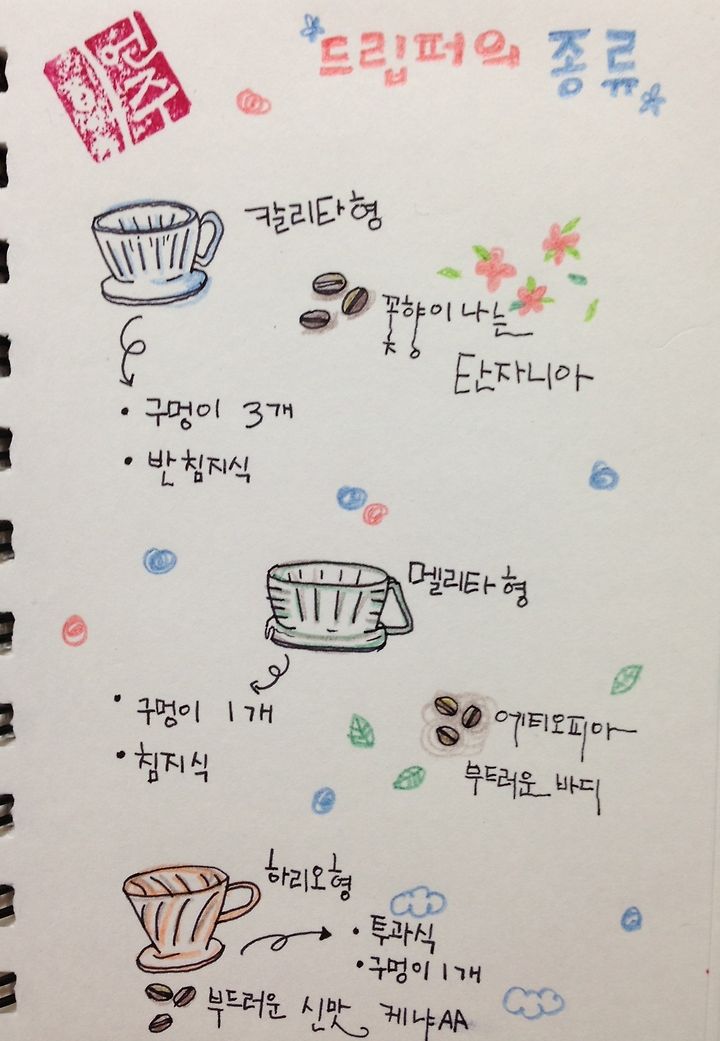 드립퍼의 종류
칼리타형
꽃향이 나는
탄자니아
• 구멍이 3개
• 반침지식
멜리타형
• 구멍이 1개
• 침지식
에티오피아
부드러운 바디
하리오형
• 투과식
• 구멍이 1개
부드러운 신맛 케냐AA